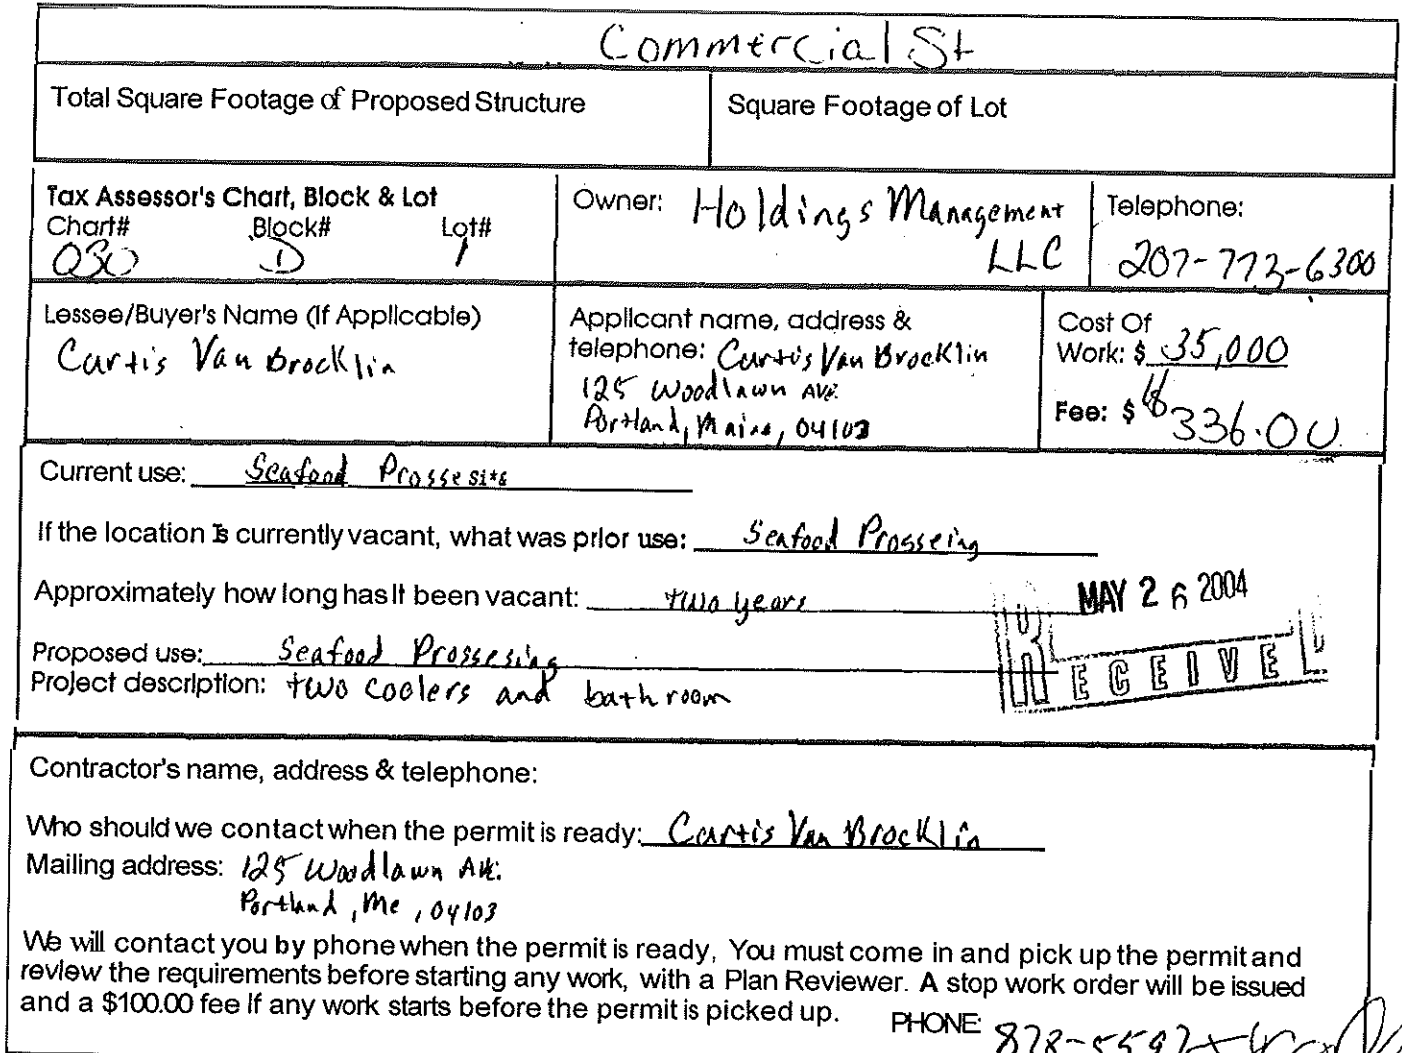 Commercial St
Total Square Footage of Proposed Structure
Square Footage of Lot
Tax Assessor's Chart, Block & Lot
Chart# Block# Lot#
030 D 1
Owner: Holdings Management
LLC
Telephone:
207-773-6300
Lessee/Buyer's Name (If Applicable)
Curtis Van Brocklin
Applicant name, address &
telephone: Curtis Van Brocklin
125 Woodlawn Ave.
Portland, Maine, 04103
Cost Of
Work: $ 35,000
Fee: $ 336.00
Current use: Seafood
If the location Is currently vacant, what was prior use: Seafood Prosseing
Approximately how long has It been vacant: two years
MAY 26 2004
RECEIVED
Proposed use: Seafood Prossesing
Project description: two coolers and bathroom
Contractor's name, address & telephone:
Who should we contact when the permit is ready: Curtis Van Brocklin
Mailing address: 125 Woodlawn Ave.
Portland, Me, 04103
We will contact you by phone when the permit is ready, You must come in and pick up the permit and
review the requirements before starting any work, with a Plan Reviewer. A stop work order will be issued
and a $100.00 fee If any work starts before the permit is picked up.
PHONE: 878-5597